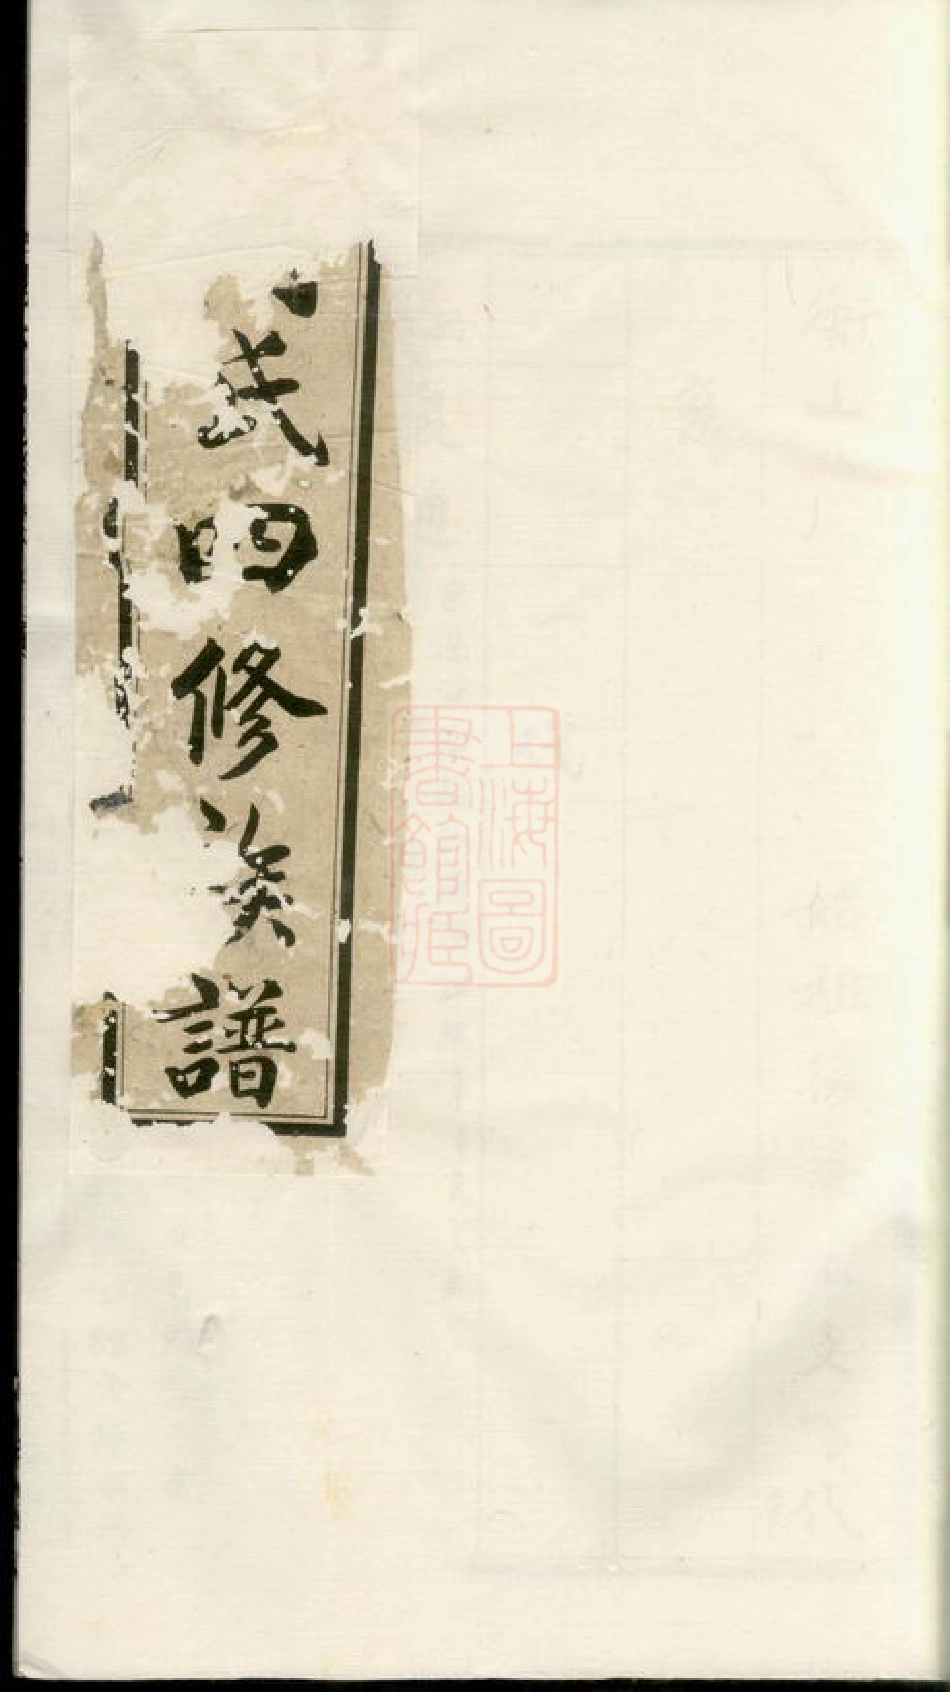 氏四修族譜
上海圖書館藏